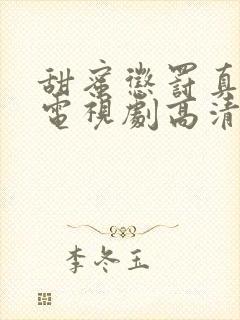 甜蜜懲罰真
電視劇高清
李冬玉